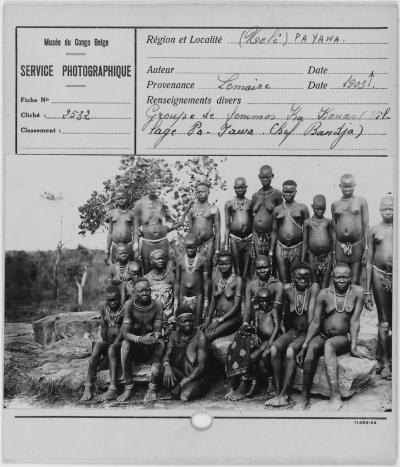 Musée du Congo Belge
SERVICE PHOTOGRAPHIQUE
Fiche No
Cliché : 2532
Classement :
Région et Localité (Uele) PAYAWA.
Auteur Date
Provenance Lemaire Date
Renseignements divers
Groupe de femmes (Vil-
lage Pa-Yawa. Chef Bandja)